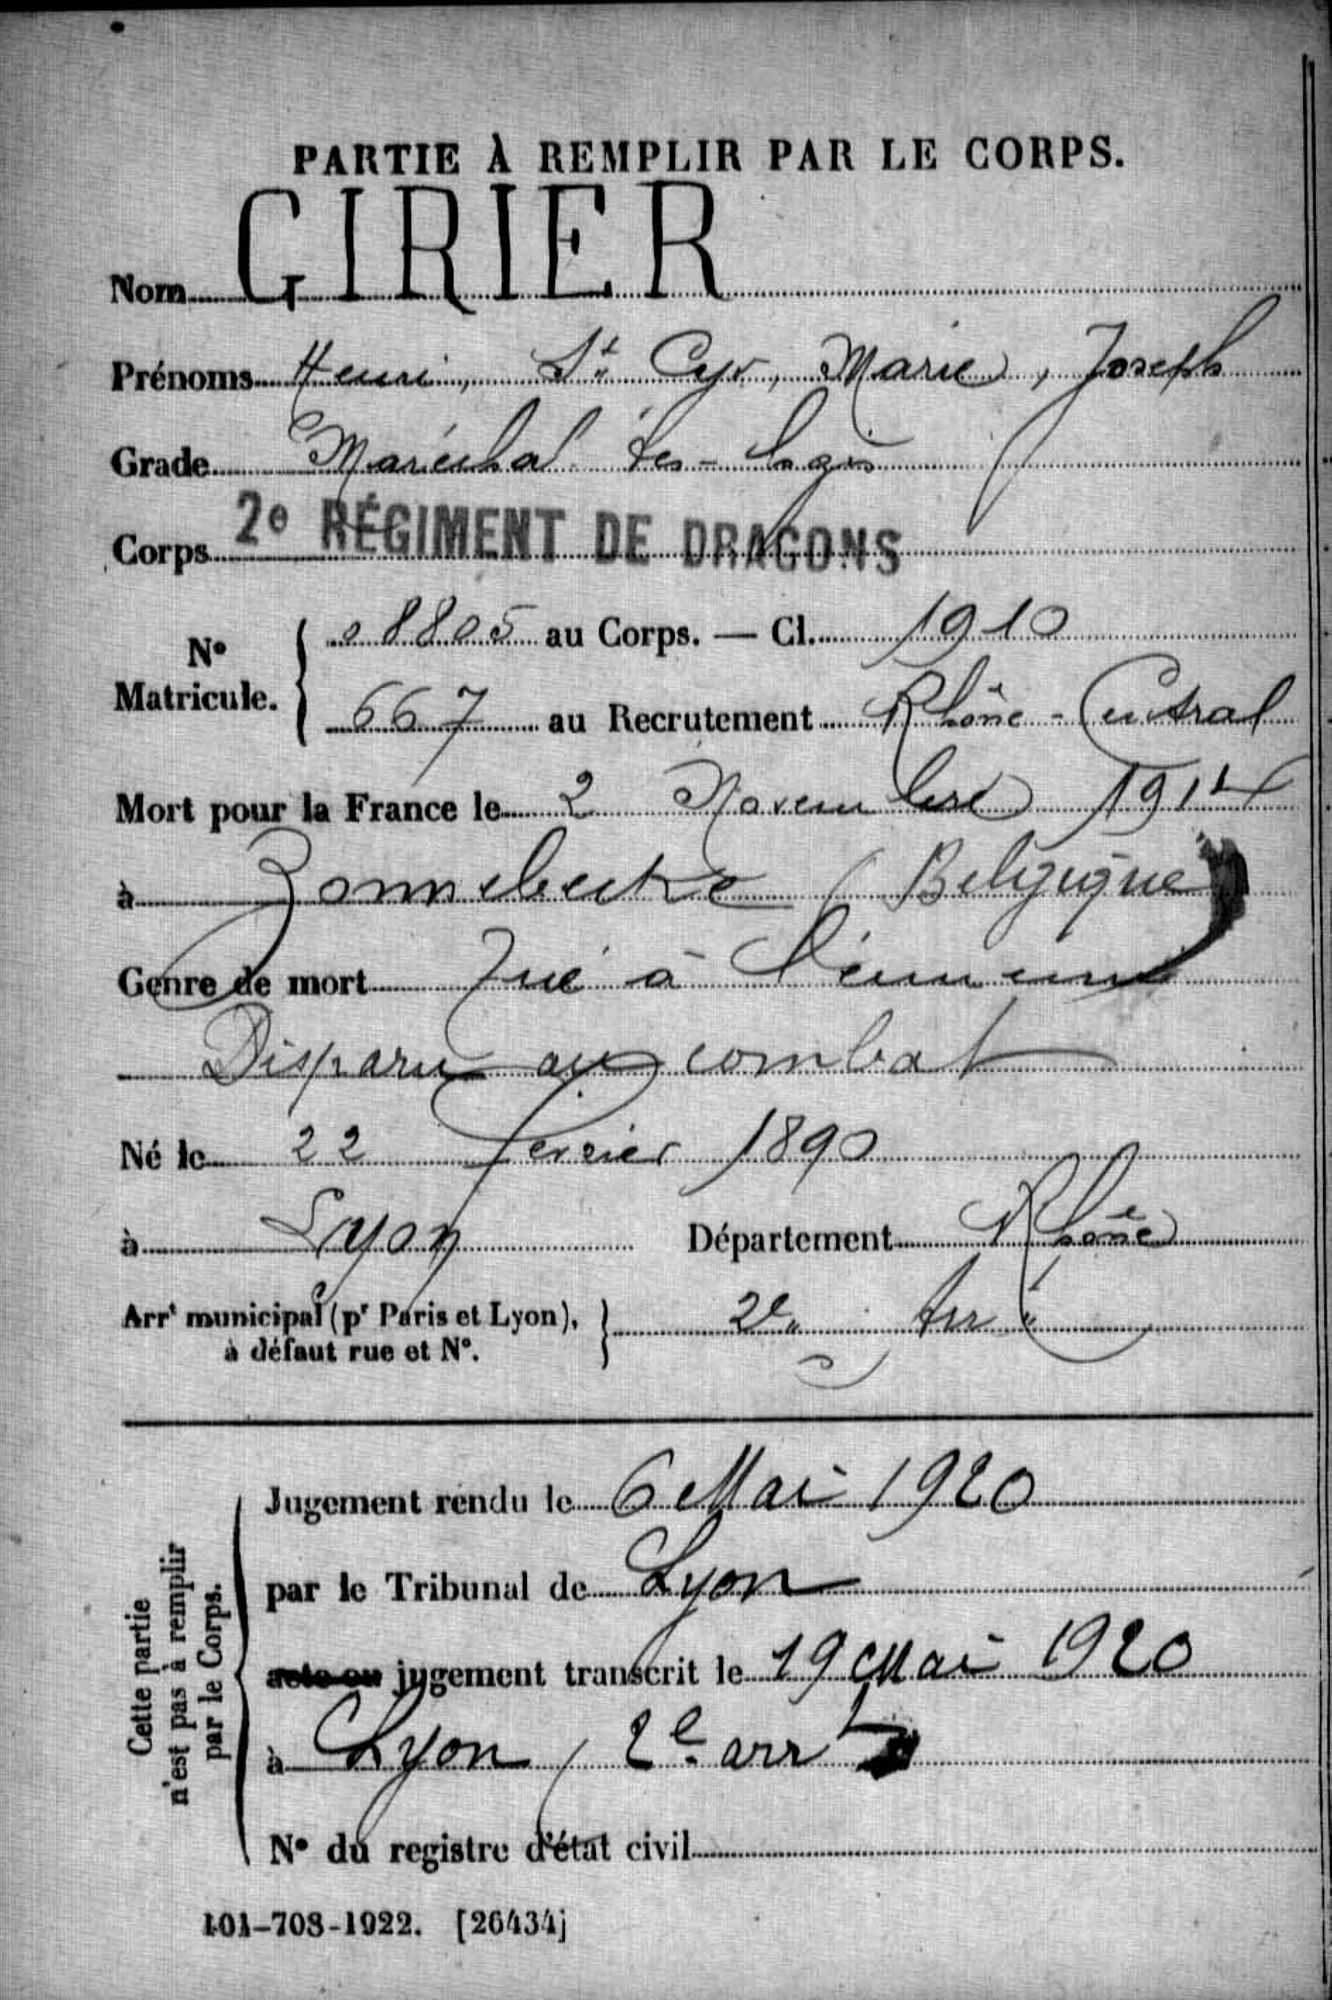 PARTIE À REMPLIR PAR LE CORPS.
Nom GIRIER
Prénoms Henri, St Cyr, Marie, Joseph
Grade Maréchal des-logis
Corps 2e RÉGIMENT DE DRAGONS
No Matricule. { 08805 au Corps. — Cl. 1910
667 au Recrutement Rhône-Central
Mort pour la France le 2 Novembre 1914
à Zonnebecke (Belgique)
Genre de mort Tué à l'ennemi
Disparu au combat
Né le 22 février 1890
à Lyon Département Rhône
Arrt municipal (pr Paris et Lyon), à défaut rue et No. } 2e Arrt
Cette partie n'est pas à remplir par le Corps.
Jugement rendu le 6 Mai 1920
par le Tribunal de Lyon
acte ou jugement transcrit le 19 Mai 1920
à Lyon, 2e arrt
No du registre d'état civil
101-708-1922. [26434]